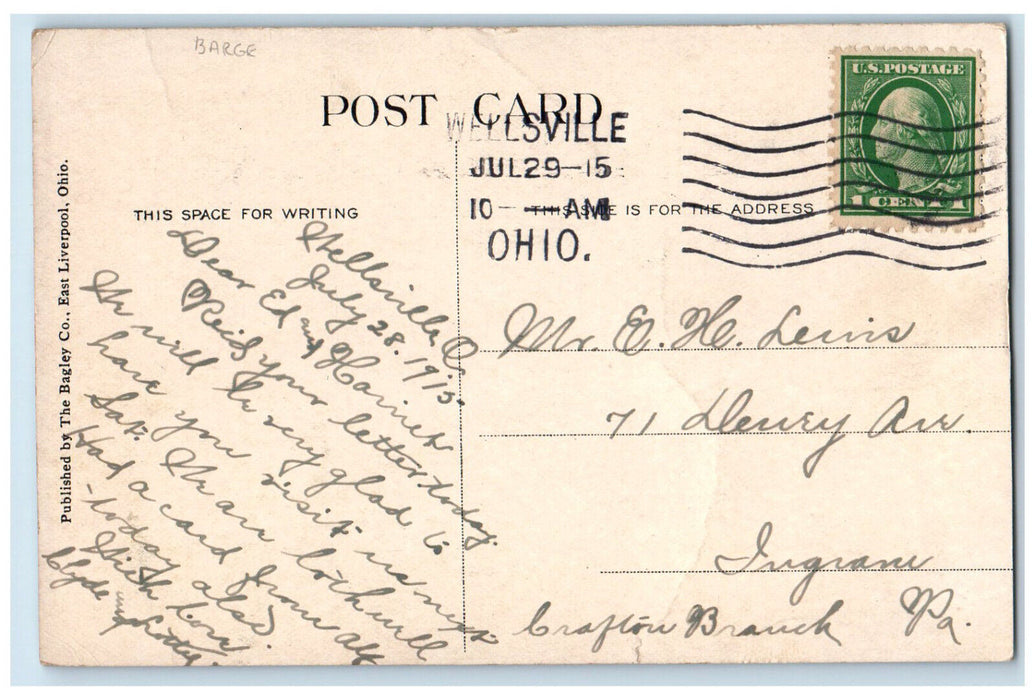 BARGE
POST CARD
WELLSVILLE
JUL 29-15
10-AM
OHIO.
U.S. POSTAGE
1 CENT 1
THIS SPACE FOR WRITING
THIS SIDE IS FOR THE ADDRESS
Published by The Bagley Co., East Liverpool, Ohio.
Wellsville O.
July 28. 1915.
Dear Ed and Harriet
Recd your letter today.
We will be very glad to
have you visit us next
Sat. We are both well
Had a card from
today also.
With love
Clyde and
Mr. E. H. Lewis
71 Dewey Ave.
Ingram
Crafton Branch Pa.